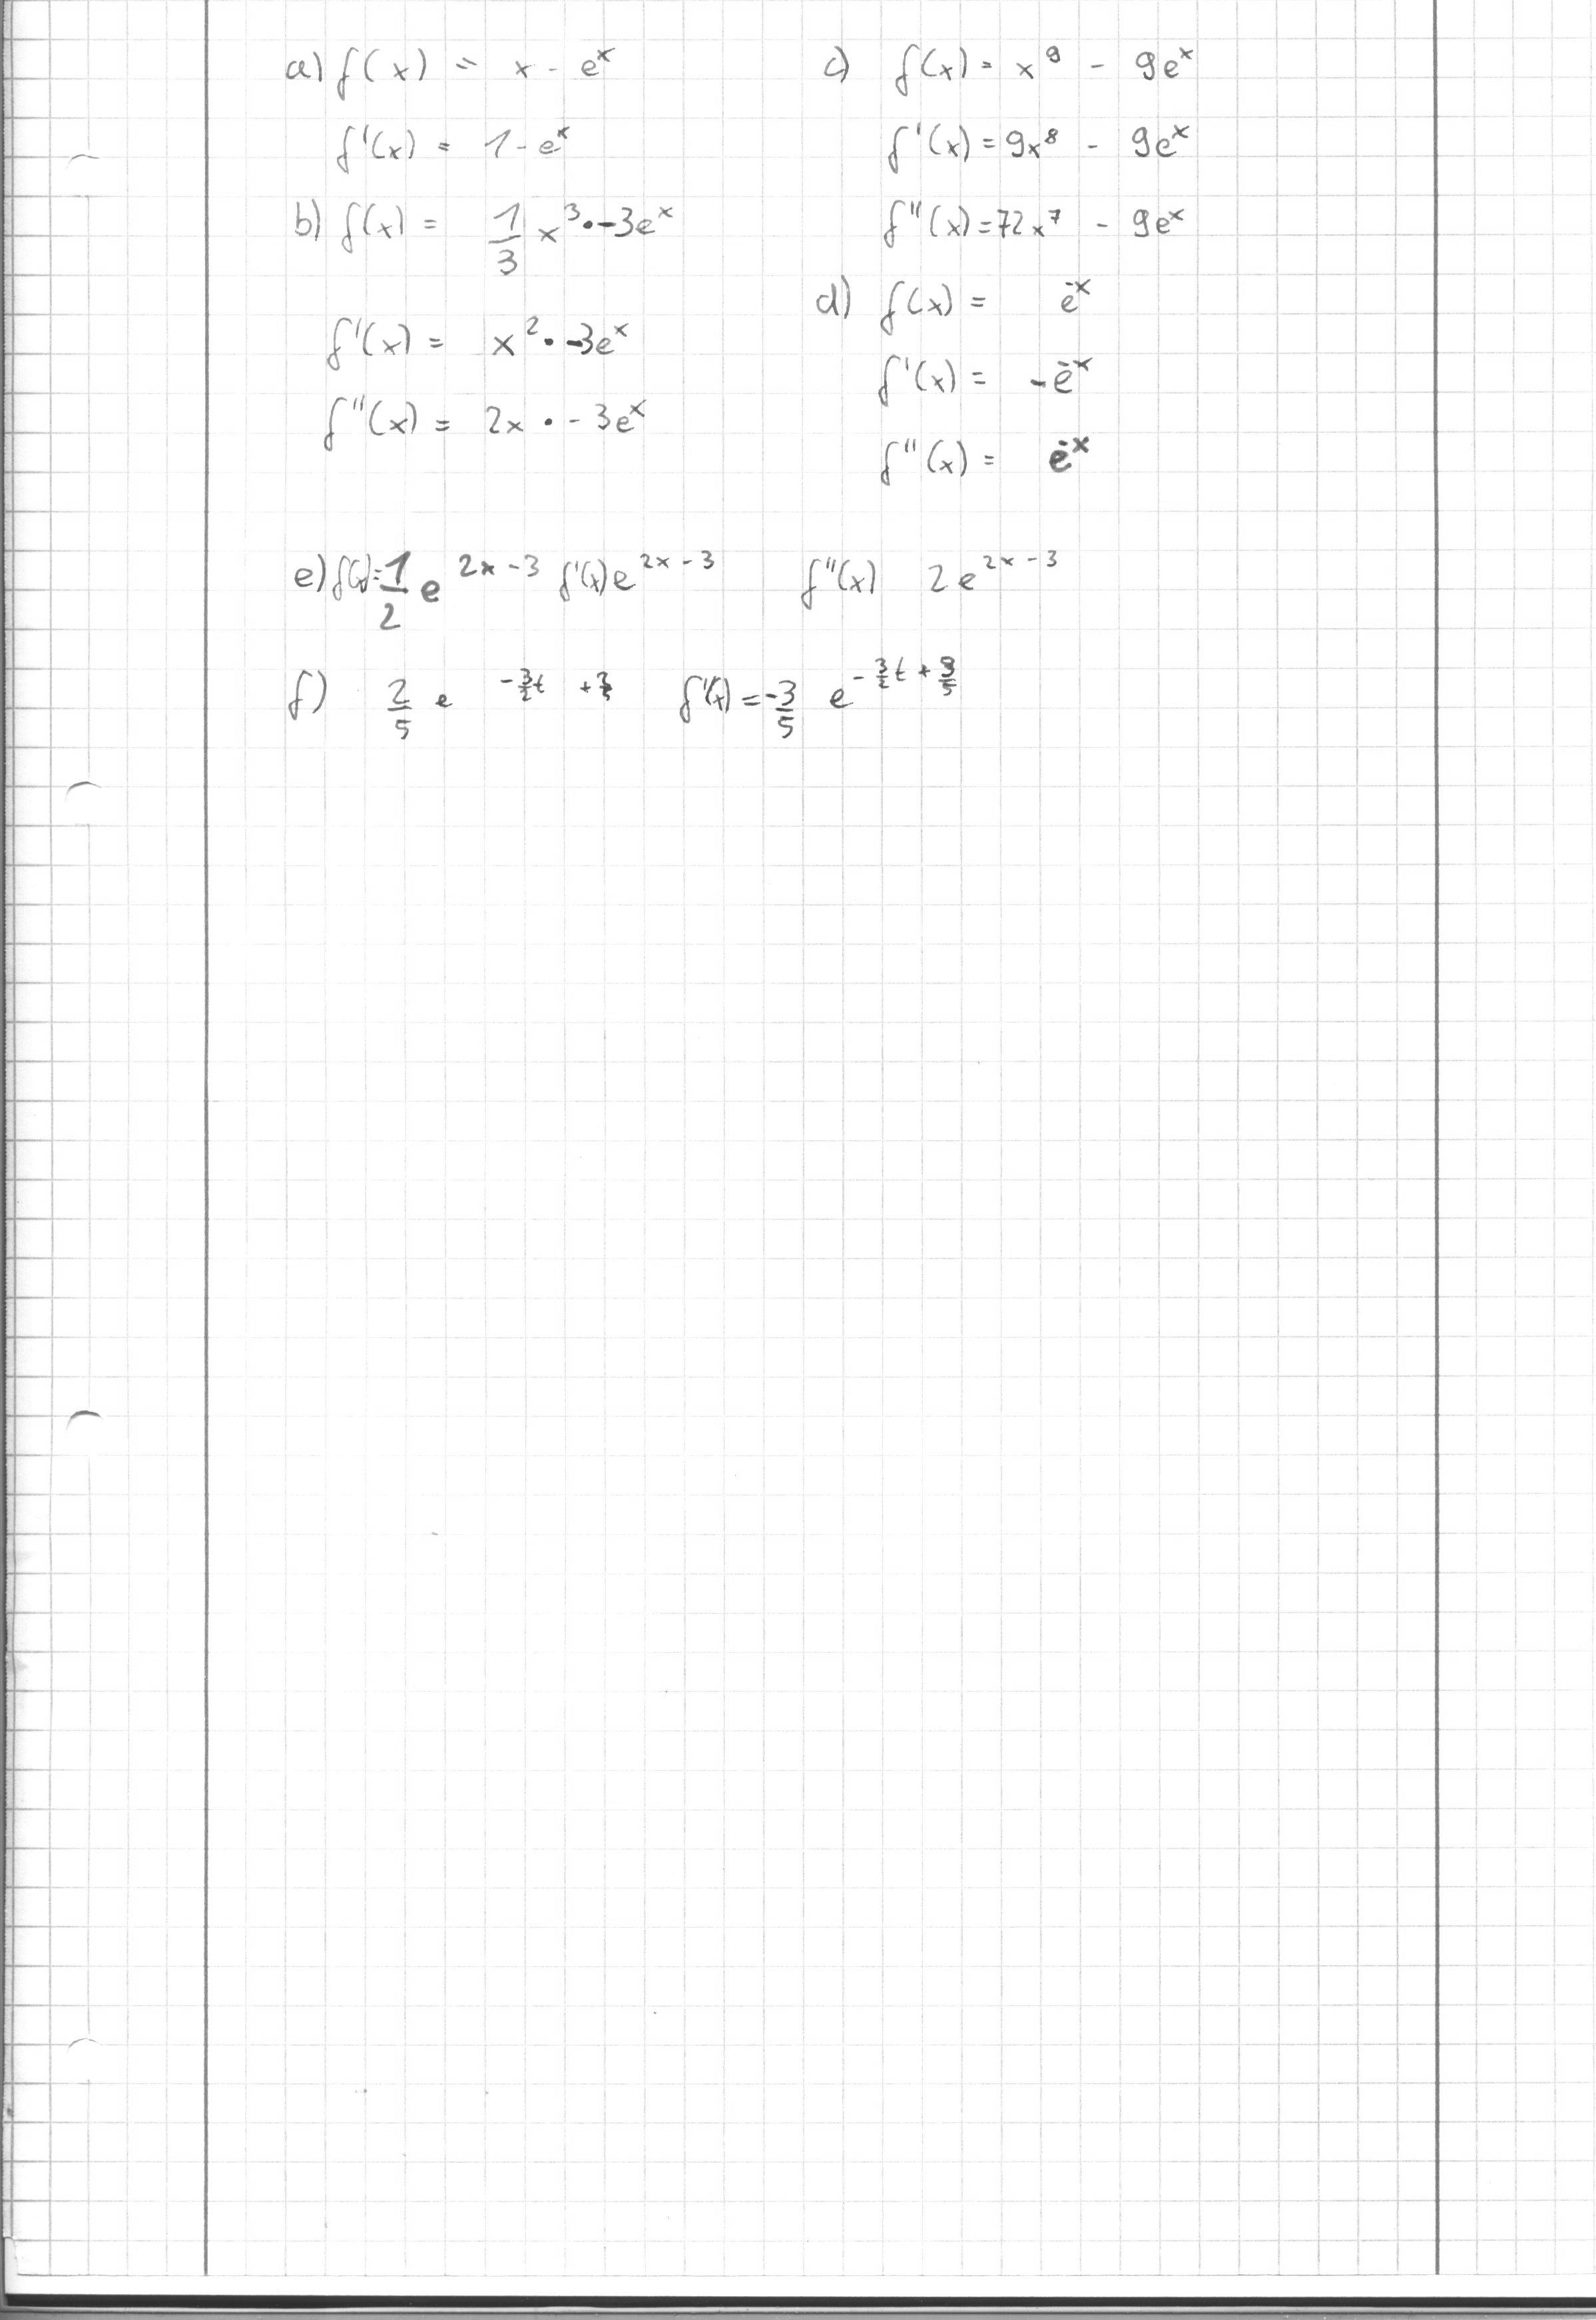 a) f(x) = x - eˣ
f'(x) = 1 - eˣ
b) f(x) = 1/3 x³ · -3eˣ
f'(x) = x² · -3eˣ
f''(x) = 2x · - 3eˣ
c) f(x) = x⁹ - 9eˣ
f'(x) = 9x⁸ - 9eˣ
f''(x) = 72x⁷ - 9eˣ
d) f(x) = e⁻ˣ
f'(x) = -e⁻ˣ
f''(x) = e⁻ˣ
e) f(x) = 1/2 e^(2x-3) f'(x) e^(2x-3) f''(x) 2e^(2x-3)
f) 2/5 e^(-3/2 t + ) f'(x) = -3/5 e^(-3/2 t + /5)